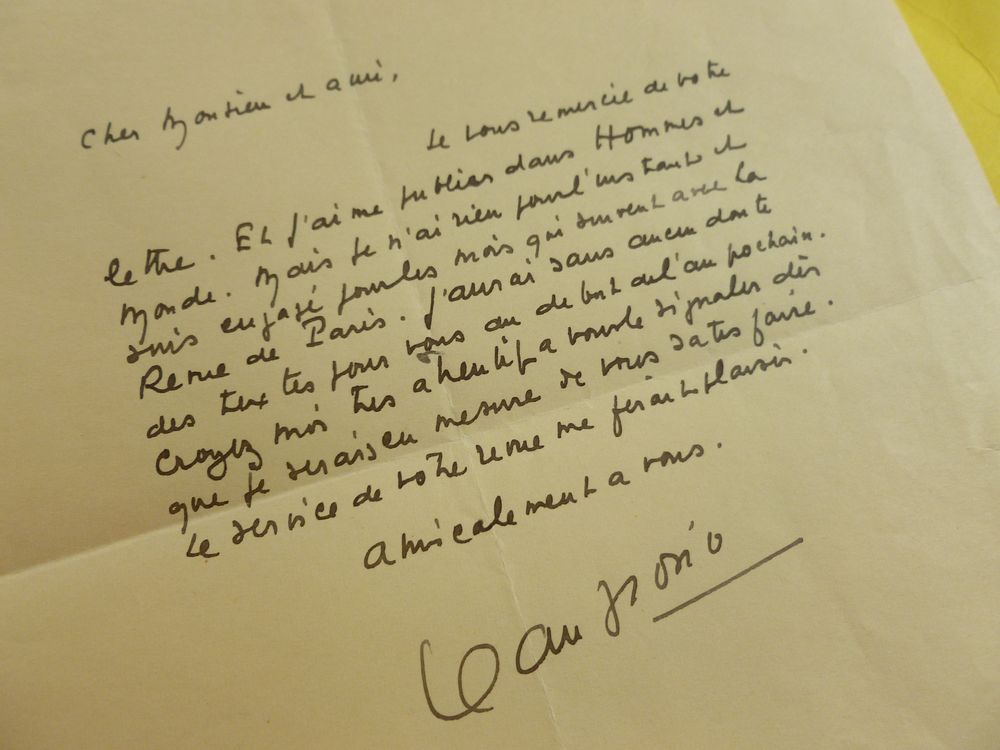 Cher Monsieur et ami,
Je vous remercie de votre
lettre. Et j'aime publier dans Hommes et
Monde. Mais je n'ai rien pour l'instant et
suis engagé pour les mois qui suivent avec la
Revue de Paris. J'aurai sans aucun doute
des textes pour vous au debut de l'an prochain.
Croyez moi très attentif a vous le signaler dès
que je serais en mesure de vous satisfaire.
Le service de votre revue me ferait plaisir.
Amicalement a vous.
Jean Giono